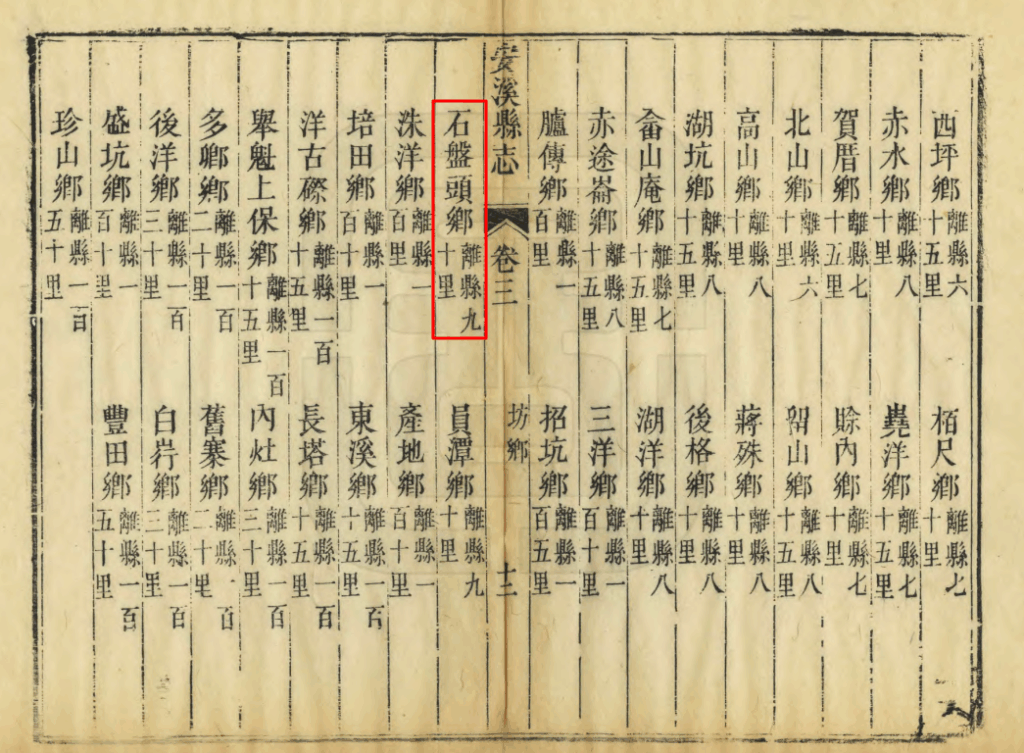 西坪鄉離縣六十五里
栢尺鄉離縣七十里
赤水鄉離縣八十里
堯洋鄉離縣七十五里
賀厝鄉離縣七十五里
賒內鄉離縣七十里
北山鄉離縣六十里
留山鄉離縣八十五里
高山鄉離縣八十里
蔣殊鄉離縣八十里
湖坑鄉離縣八十五里
後格鄉離縣八十里
畬山庵鄉離縣七十五里
湖洋鄉離縣八十里
赤途崙鄉離縣八十五里
三洋鄉離縣一百十里
臚傳鄉離縣一百里
招坑鄉離縣一百五里
安溪縣志
卷三
坊鄉
十二
石盤頭鄉離縣九十里
員潭鄉離縣九十里
洙洋鄉離縣一百里
產地鄉離縣一百十里
培田鄉離縣一百十里
東溪鄉離縣一百十五里
洋古磜鄉離縣一百十五里
長塔鄉離縣一百十里
舉魁上保鄉離縣一百十五里
內灶鄉離縣一百三十里
多鄉鄉離縣一百二十里
舊寨鄉離縣一百二十里
後洋鄉離縣一百三十里
白荇鄉離縣一百三十里
盛坑鄉離縣一百十里
豐田鄉離縣一百五十里
珍山鄉離縣一百五十里